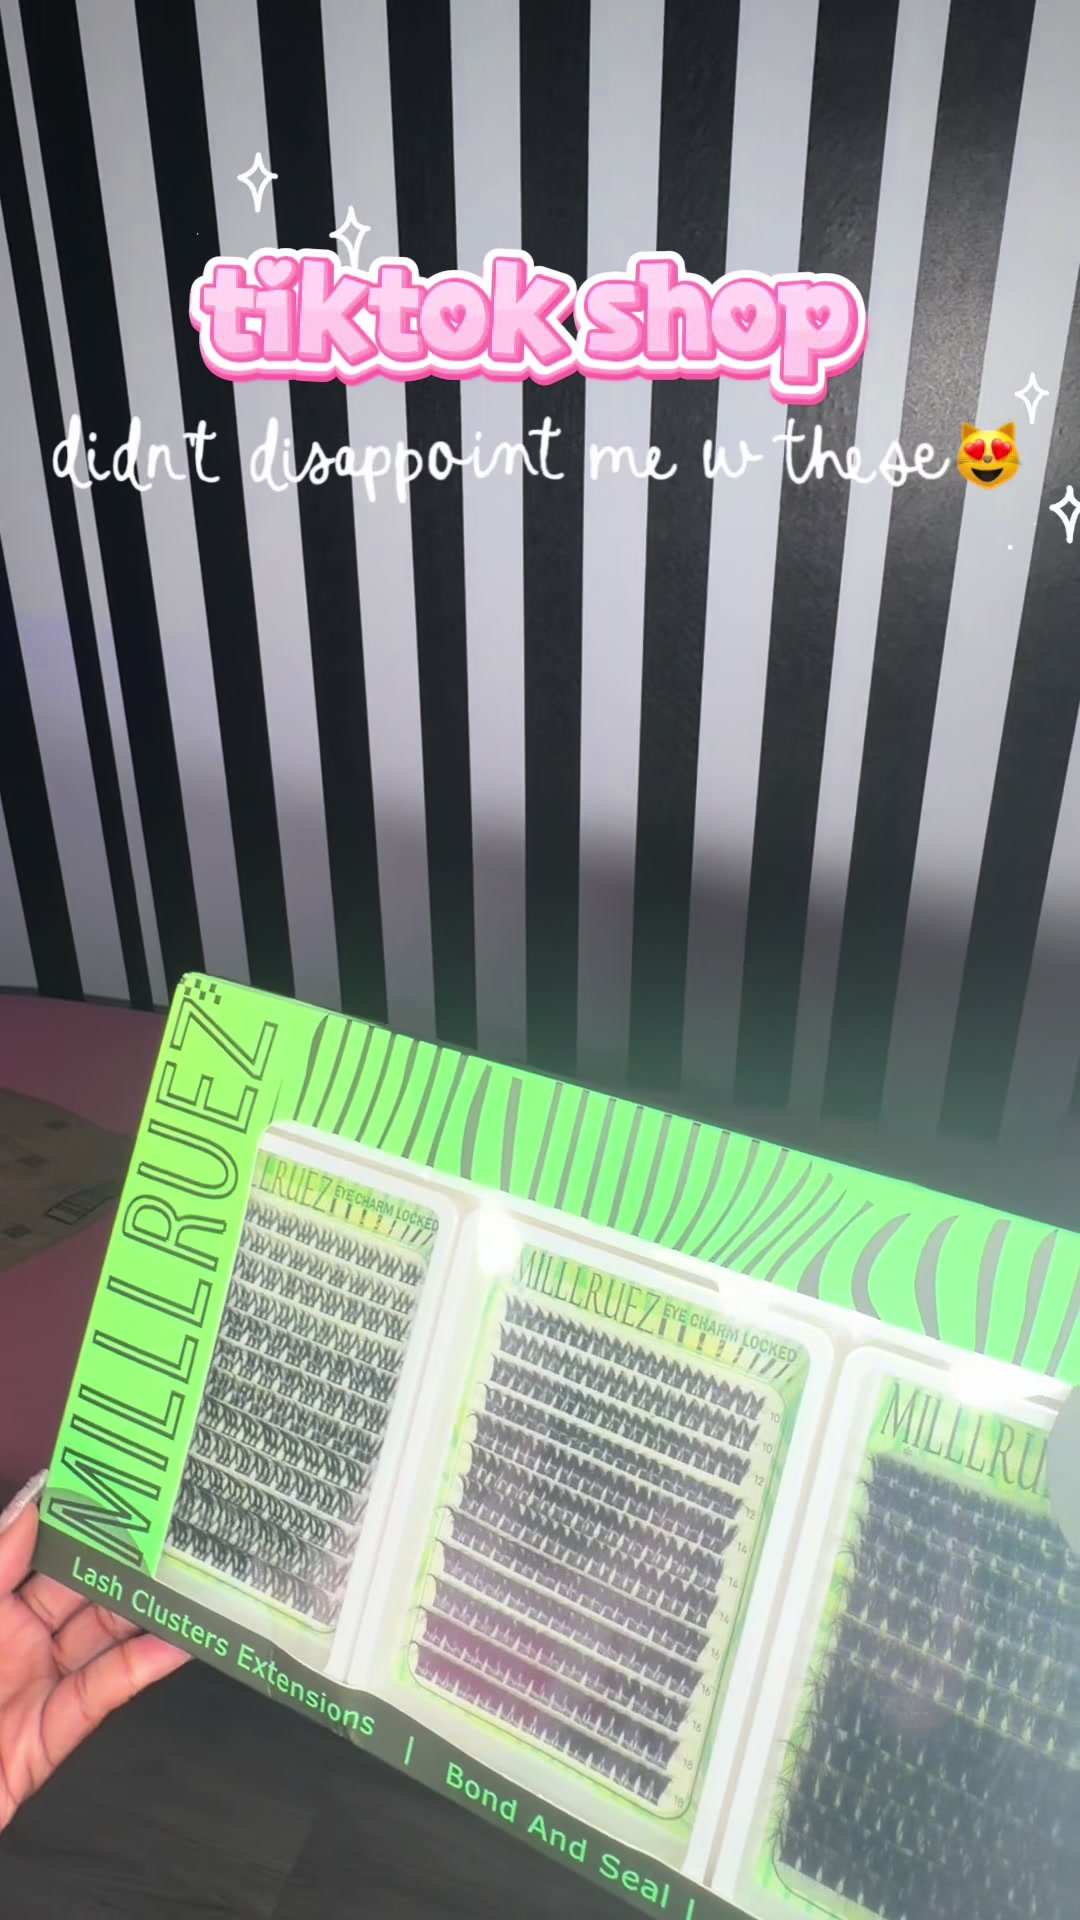 tiktok shop
didn't disappoint me w these😻
MILLRUEZ
LLRUEZ EYE CHARM LOCKED
MILLRUEZ EYE CHARM LOCKED
10
10
12
12
14
14
14
16
16
16
18
18
MILLRU
Lash Clusters Extensions | Bond And Seal |